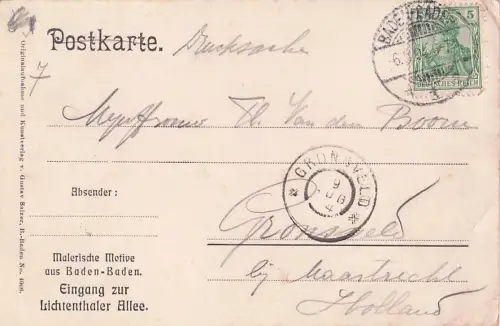 Postkarte.
Drucksache
BADEN-BADEN
5
DEUTSCHES REICH
7
Th. Van den Boorn
GRONSVELD
9
4
Gronsveld
bij Maastricht
Holland
Absender:
Malerische Motive
aus Baden-Baden.
Eingang zur
Lichtenthaler Allee.
Originalaufnahme und Kunstverlag v. Gustav Salzer, B.-Baden No.